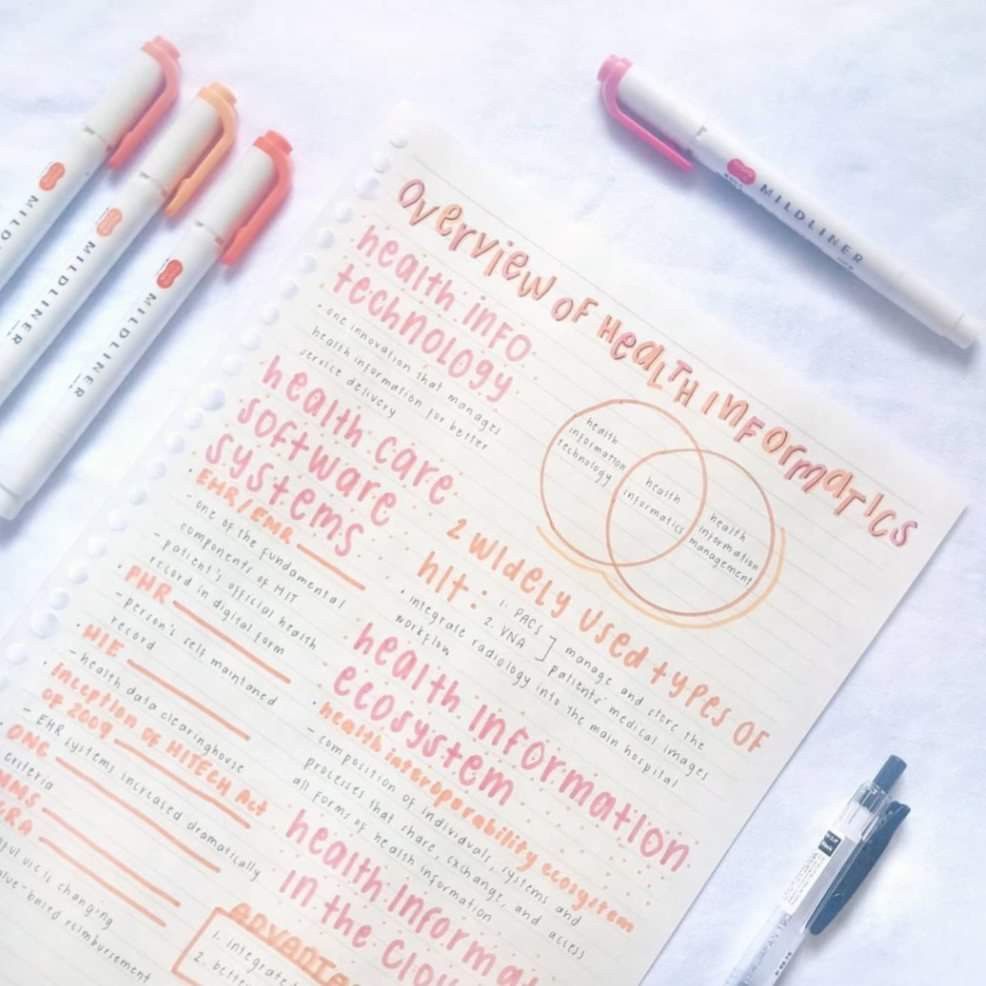 Overview of Health Informatics
health info
technology
• one innovation that manages
health information for better
service delivery
health care
software
systems
• EHR/EMR
- one of the fundamental
components of HIT
- patient's official health
record in digital form
• PHR
- person's self maintained
record
• HIE
- health data clearinghouse
• inception of HITECH Act
of 2009
- EHR systems increased dramatically
ONC
criteria
is changing
reimbursement
health
information
technology
health
informatics
health
information
management
2 widely used types of
hit:
1. PACS
2. VNA
manage and store the
patients' medical images
• integrate radiology into the main hospital
workflow
health information
ecosystem
• health interoperability ecosystem
- composition of individuals, systems and
processes that share, exchange, and access
all forms of health information
health informa
in the clou
1. integrate
2. bette
MILDLINER
MILDLINER
MILDLINER
MILDLINER